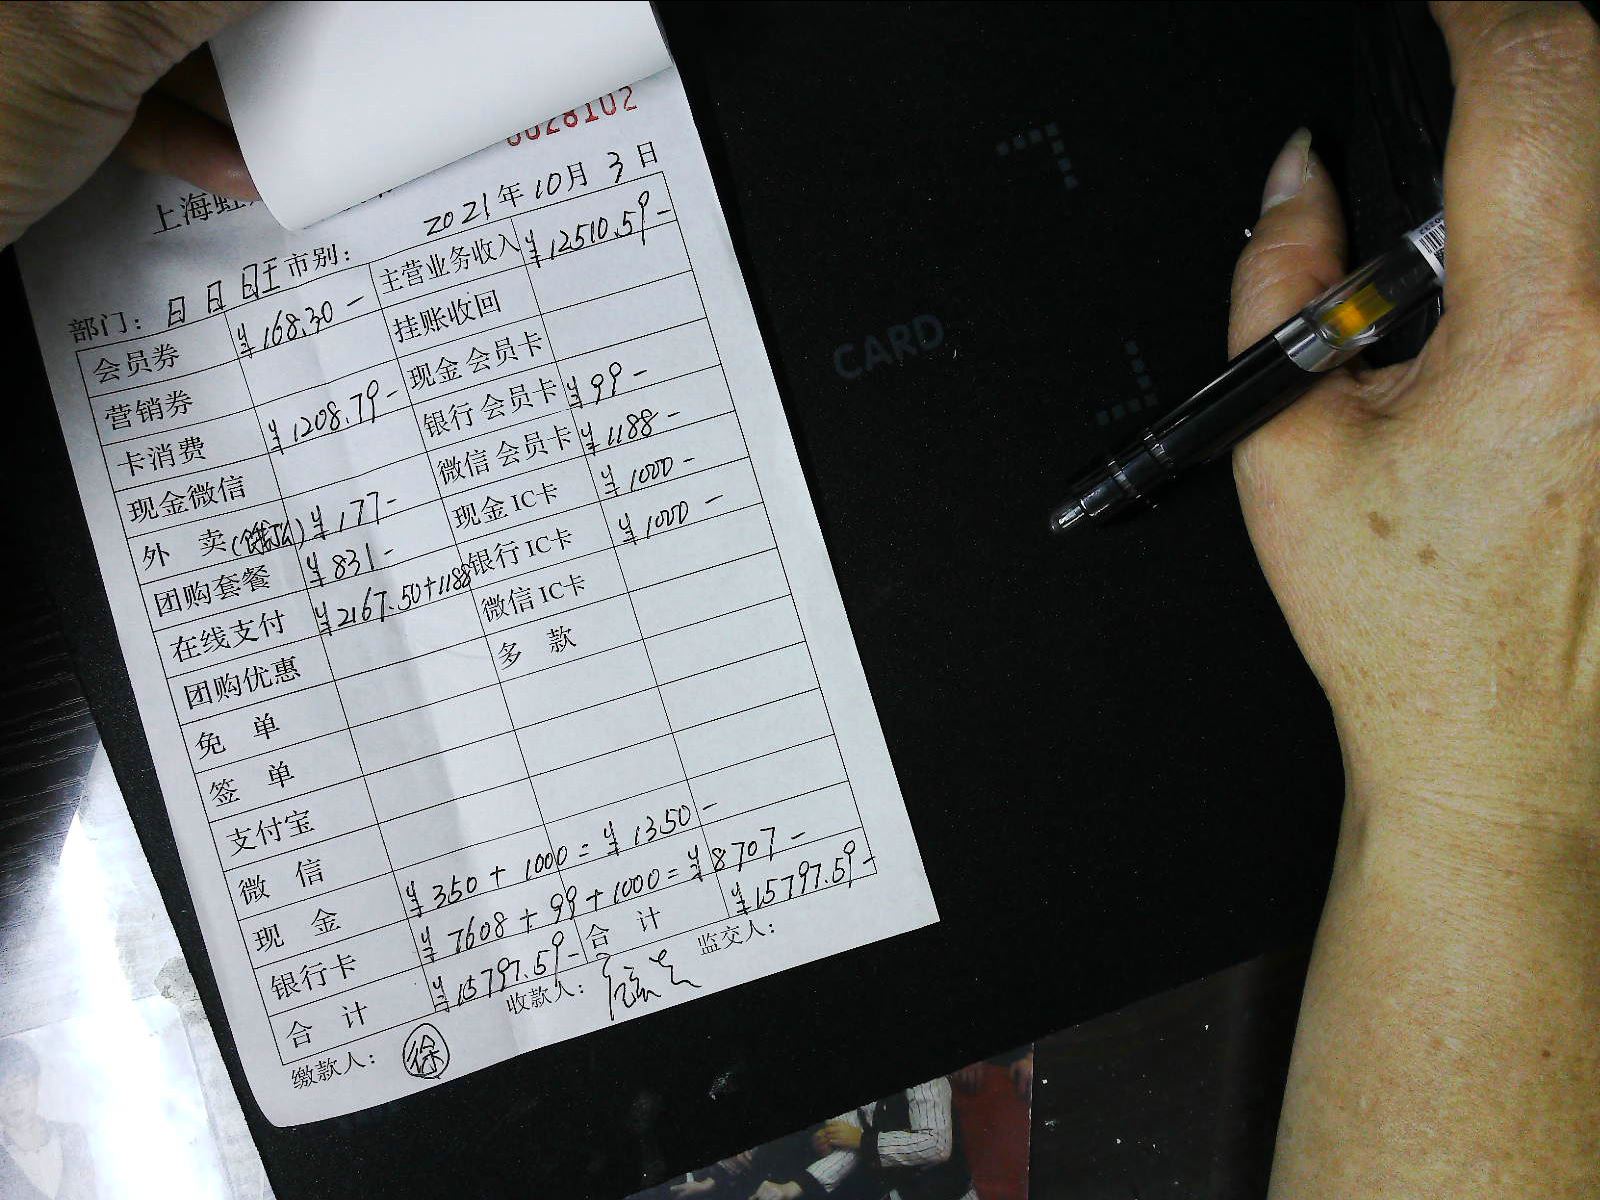 0028102
上海
2021年10月3日
部门: 日日旺 市别:
会员券 ¥168.30- 主营业务收入 ¥12510.59-
营销券 挂账收回
卡消费 ¥1208.79- 现金会员卡
现金微信 银行会员卡 ¥99-
外 卖(饿了么) ¥177- 微信会员卡 ¥1188-
团购套餐 ¥831- 现金IC卡 ¥1000-
在线支付 ¥2167.50+1188 银行IC卡 ¥1000-
团购优惠 微信IC卡
免 单 多 款
签 单
支付宝
微 信
现 金 ¥350+1000=¥1350-
银行卡 ¥7608+99+1000=¥8707-
合 计 ¥15797.59- 合 计 ¥15797.59-
缴款人: 徐 收款人: 监交人:
CARD